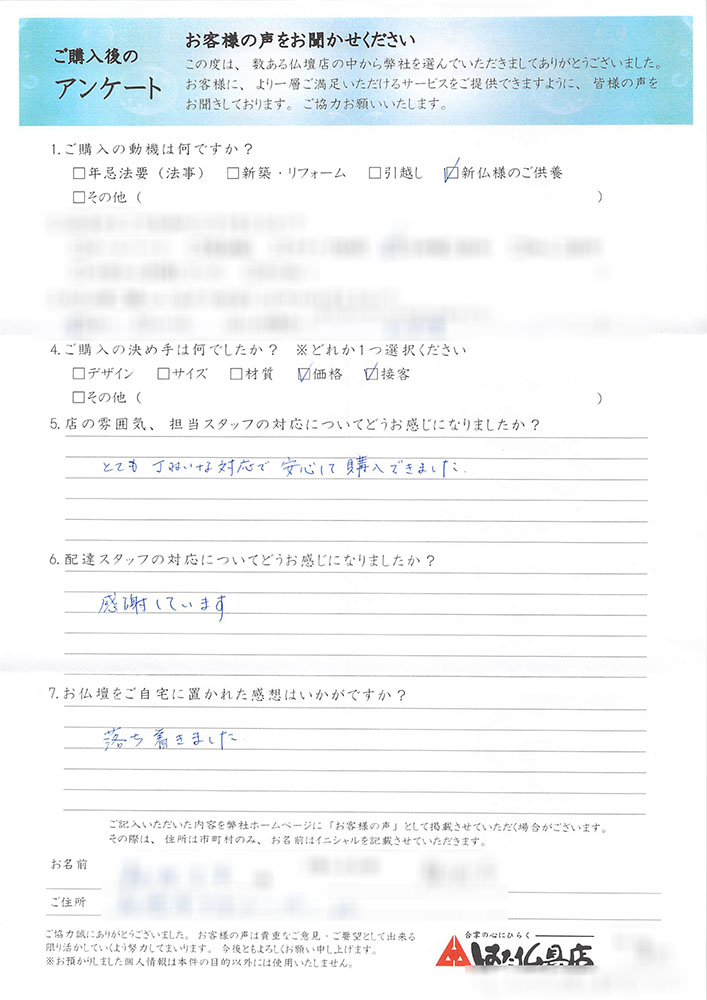 ご購入後の
アンケート
お客様の声をお聞かせください
この度は、数ある仏壇店の中から弊社を選んでいただきましてありがとうございました。
お客様に、より一層ご満足いただけるサービスをご提供できますように、皆様の声を
お聞きしております。ご協力お願いいたします。
1.ご購入の動機は何ですか?
□年忌法要(法事) □新築・リフォーム □引越し ☑新仏様のご供養
□その他( )
4.ご購入の決め手は何でしたか? ※どれか1つ選択ください
□デザイン □サイズ □材質 ☑価格 ☑接客
□その他( )
5.店の雰囲気、担当スタッフの対応についてどうお感じになりましたか?
とても丁ねいな対応で安心して購入できました.
6.配達スタッフの対応についてどうお感じになりましたか?
感謝しています
7.お仏壇をご自宅に置かれた感想はいかがですか?
落ち着きました.
ご記入いただいた内容を弊社ホームページに「お客様の声」として掲載させていただく場合がございます。
その際は、住所は市町村のみ、お名前はイニシャルを記載させていただきます。
お名前
ご住所
ご協力誠にありがとうございました。お客様の声は貴重なご意見・ご要望として出来る
限り活かしていくよう努力してまいります。今後ともよろしくお願い申し上げます。
※お預かりしました個人情報は本件の目的以外には使用いたしません。
合掌の心にひらく
はた仏具店